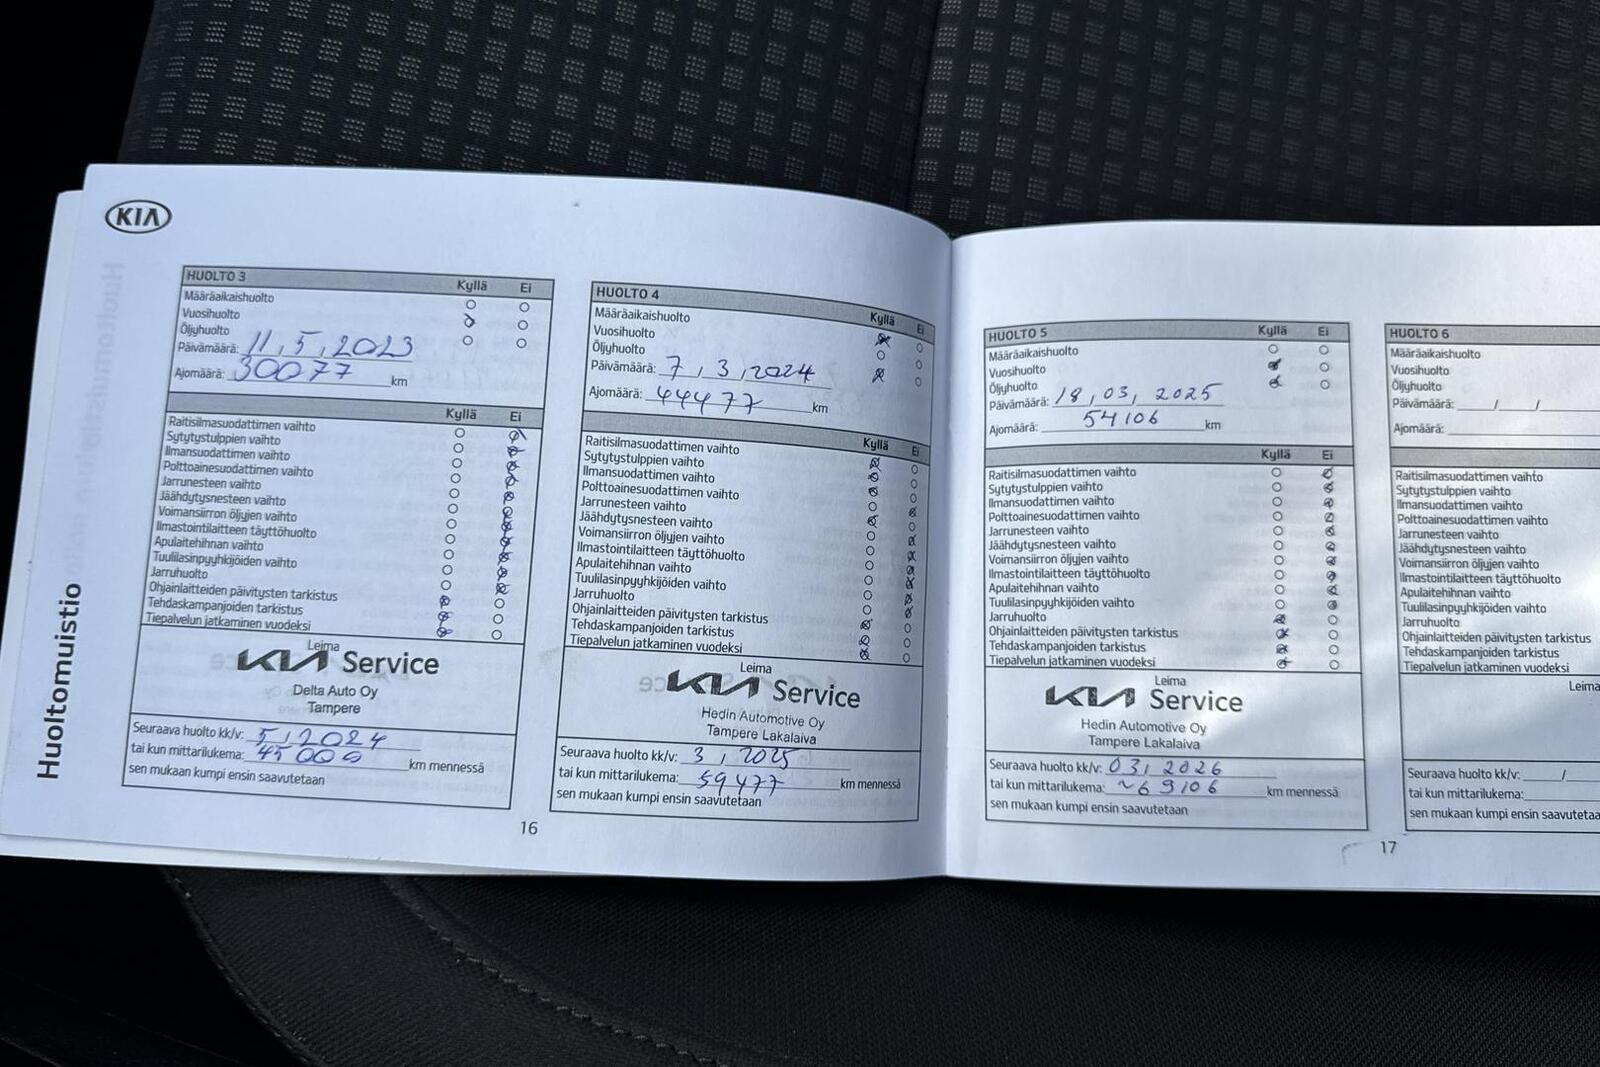 KIA
Huoltomuistio
HUOLTO 3
Kyllä Ei
Määräaikaishuolto
Vuosihuolto
Öljyhuolto
Päivämäärä: 11, 5, 2023
Ajomäärä: 30077 km
Kyllä Ei
Raitisilmasuodattimen vaihto
Sytytystulppien vaihto
Ilmansuodattimen vaihto
Polttoainesuodattimen vaihto
Jarrunesteen vaihto
Jäähdytysnesteen vaihto
Voimansiirron öljyjen vaihto
Ilmastointilaitteen täyttöhuolto
Apulaitehihnan vaihto
Tuulilasinpyyhkijöiden vaihto
Jarruhuolto
Ohjainlaitteiden päivitysten tarkistus
Tehdaskampanjoiden tarkistus
Tiepalvelun jatkaminen vuodeksi
Leima
KIA Service
Delta Auto Oy
Tampere
Seuraava huolto kk/v: 5, 2024
tai kun mittarilukema: 45000 km mennessä
sen mukaan kumpi ensin saavutetaan
16
HUOLTO 4
Kyllä Ei
Määräaikaishuolto
Vuosihuolto
Öljyhuolto
Päivämäärä: 7, 3, 2024
Ajomäärä: 44477 km
Kyllä Ei
Raitisilmasuodattimen vaihto
Sytytystulppien vaihto
Ilmansuodattimen vaihto
Polttoainesuodattimen vaihto
Jarrunesteen vaihto
Jäähdytysnesteen vaihto
Voimansiirron öljyjen vaihto
Ilmastointilaitteen täyttöhuolto
Apulaitehihnan vaihto
Tuulilasinpyyhkijöiden vaihto
Jarruhuolto
Ohjainlaitteiden päivitysten tarkistus
Tehdaskampanjoiden tarkistus
Tiepalvelun jatkaminen vuodeksi
Leima
KIA Service
Hedin Automotive Oy
Tampere Lakalaiva
Seuraava huolto kk/v: 3, 2025
tai kun mittarilukema: 59477 km mennessä
sen mukaan kumpi ensin saavutetaan
HUOLTO 5
Kyllä Ei
Määräaikaishuolto
Vuosihuolto
Öljyhuolto
Päivämäärä: 18, 03, 2025
Ajomäärä: 54106 km
Kyllä Ei
Raitisilmasuodattimen vaihto
Sytytystulppien vaihto
Ilmansuodattimen vaihto
Polttoainesuodattimen vaihto
Jarrunesteen vaihto
Jäähdytysnesteen vaihto
Voimansiirron öljyjen vaihto
Ilmastointilaitteen täyttöhuolto
Apulaitehihnan vaihto
Tuulilasinpyyhkijöiden vaihto
Jarruhuolto
Ohjainlaitteiden päivitysten tarkistus
Tehdaskampanjoiden tarkistus
Tiepalvelun jatkaminen vuodeksi
Leima
KIA Service
Hedin Automotive Oy
Tampere Lakalaiva
Seuraava huolto kk/v: 03, 2026
tai kun mittarilukema: ~69106 km mennessä
sen mukaan kumpi ensin saavutetaan
17
HUOLTO 6
Määräaikaishuolto
Vuosihuolto
Öljyhuolto
Päivämäärä: / /
Ajomäärä:
Raitisilmasuodattimen vaihto
Sytytystulppien vaihto
Ilmansuodattimen vaihto
Polttoainesuodattimen vaihto
Jarrunesteen vaihto
Jäähdytysnesteen vaihto
Voimansiirron öljyjen vaihto
Ilmastointilaitteen täyttöhuolto
Apulaitehihnan vaihto
Tuulilasinpyyhkijöiden vaihto
Jarruhuolto
Ohjainlaitteiden päivitysten tarkistus
Tehdaskampanjoiden tarkistus
Tiepalvelun jatkaminen vuodeksi
Leima
Seuraava huolto kk/v: /
tai kun mittarilukema:
sen mukaan kumpi ensin saavuteta